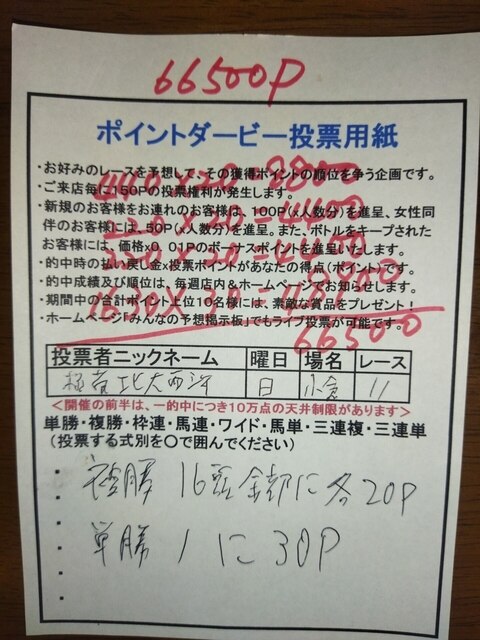 66500P
ポイントダービー投票用紙
・お好みのレースを予想して、その獲得ポイントの順位を争う企画です。
・ご来店毎に150Pの投票権利が発生します。
・新規のお客様をお連れのお客様は、100P(x人数分)を進呈、女性同
伴のお客様には、50P(x人数分)を進呈。また、ボトルをキープされた
お客様には、価格x0.01Pのボーナスポイントを進呈いたします。
・的中時の払い戻し金x投票ポイントがあなたの得点(ポイント)です。
・的中成績及び順位は、毎週店内&ホームページでお知らせします。
・期間中の合計ポイント上位10名様には、素敵な賞品をプレゼント!
・ホームページ「みんなの予想掲示板」でもライブ投票が可能です。
66500
投票者ニックネーム 曜日 場名 レース
日 小倉 11
<開催の前半は、一的中につき10万点の天井制限があります>
単勝・複勝・枠連・馬連・ワイド・馬単・三連複・三連単
(投票する式別を○で囲んでください)
複勝 16頭全部に各20P
単勝 1に30P